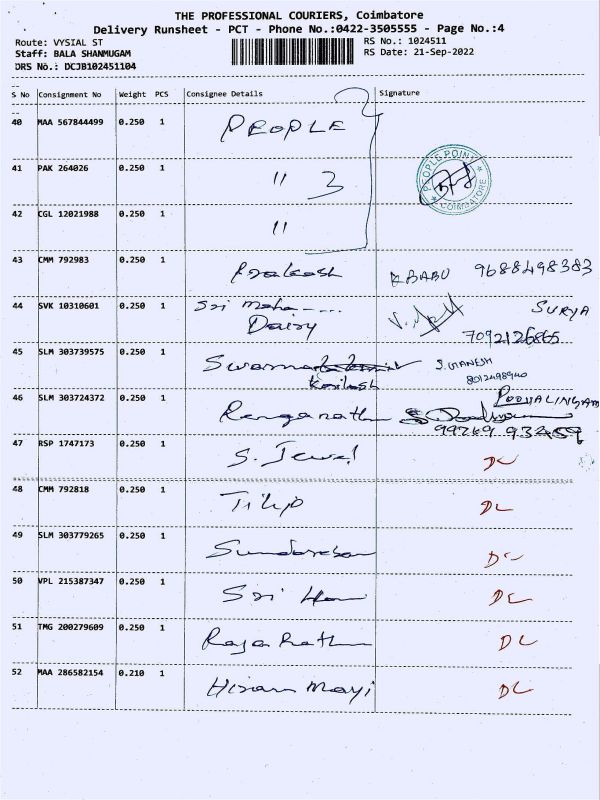 THE PROFESSIONAL COURIERS, Coimbatore
Delivery Runsheet - PCT - Phone No.:0422-3505555 - Page No.:4
Route: VYSIAL ST RS No.: 1024511
Staff: BALA SHANMUGAM RS Date: 21-Sep-2022
DRS No.: DCJB102451104
S No Consignment No Weight PCS Consignee Details Signature
40 MAA 567844499 0.250 1 PEOPLE
41 PAK 264026 0.250 1 " 3
PEOPLE POINT
COIMBATORE
42 CGL 12021988 0.250 1 "
43 CMM 792983 0.250 1 Prakash BABU 9688498383
44 SVK 10310601 0.250 1 Sri Maha---- SURYA
Dairy 7092126865
45 SLM 303739575 0.250 1 S. GANESH
Kailash 8012498940
46 SLM 303724372 0.250 1 Renganath
99769 93459
47 RSP 1747173 0.250 1 S. Jewel DL
48 CMM 792818 0.250 1 Tilip DL
49 SLM 303779265 0.250 1 DL
50 VPL 215387347 0.250 1 Sri DL
51 TMG 200279609 0.250 1 DL
52 MAA 286582154 0.210 1 DL